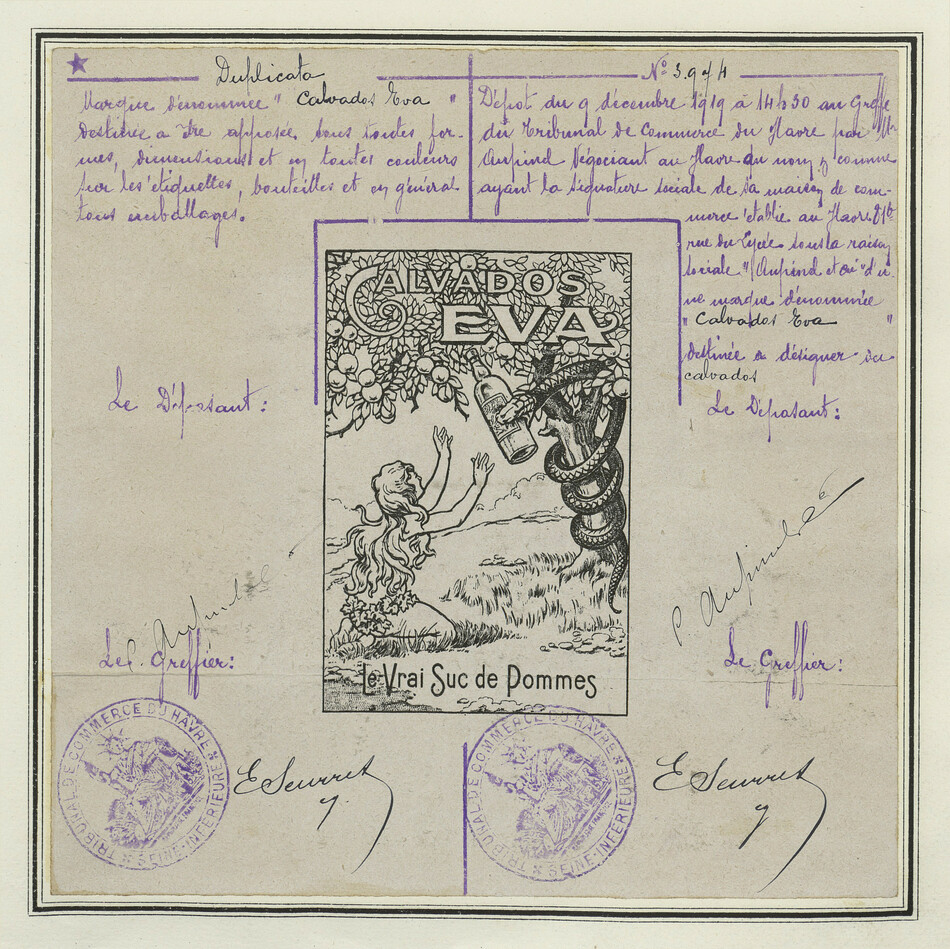 Duplicata
Marque dénommée " Calvados Eva "
destinée a être apposée sous toutes for-
mes, dimensions et en toutes couleurs
sur les étiquettes, bouteilles et en général
tous emballages.
Le Déposant:
Le Greffier:
E Seurret
TRIBUNAL DE COMMERCE DU HAVRE
SEINE-INFÉRIEURE
No 3.974
Dépot du 9 décembre 1919 à 14h30 au Greffe
du Tribunal de Commerce du Havre par Mr
Aupind Négociant au Havre au nom, et comme
ayant la signature sociale de sa maison de com-
merce établie au Havre 81bis
rue du Lycée sous la raison
sociale "Aupind et Cie" d'u-
ne marque dénommée
" Calvados Eva "
destinée a désigner du
calvados
Le Déposant:
Le Greffier:
E Seurret
TRIBUNAL DE COMMERCE DU HAVRE
SEINE-INFÉRIEURE
CALVADOS
EVA
Le Vrai Suc de Pommes